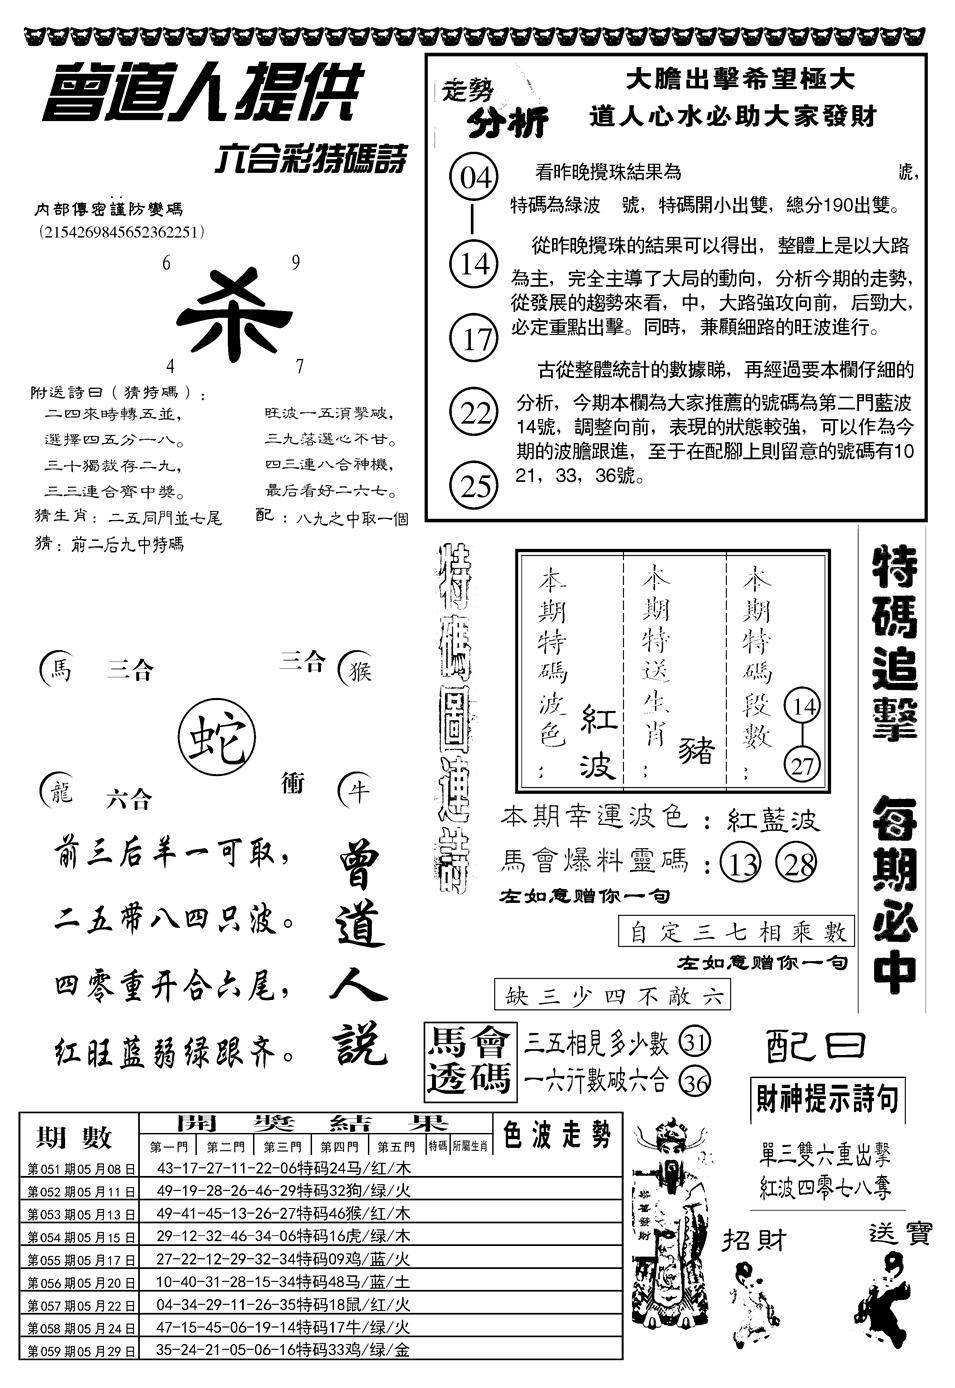 曾道人提供
六合彩特碼詩
内部傳密謹防變碼
（2154269845652362251）
6 9
杀
4 7
附送詩曰（猜特碼）：
二四來時轉五並， 旺波一五須擊破，
選擇四五分一八。 三九落選心不甘。
三十獨裁存二九， 四三連八合神機，
三三連合齊中獎。 最后看好二六七。
猜生肖：二五同門並七尾 配：八九之中取一個
猜：前二后九中特碼
走勢
分析
大膽出擊希望極大
道人心水必助大家發財
04
14
17
22
25
看昨晚攪珠結果為 號，
特碼為綠波 號，特碼開小出雙，總分190出雙。
從昨晚攪珠的結果可以得出，整體上是以大路
為主，完全主導了大局的動向，分析今期的走勢，
從發展的趨勢來看，中，大路強攻向前，后勁大，
必定重點出擊。同時，兼顧細路的旺波進行。
古從整體統計的數據睇，再經過要本欄仔細的
分析，今期本欄為大家推薦的號碼為第二門藍波
14號，調整向前，表現的狀態較強，可以作為今
期的波膽跟進，至于在配腳上則留意的號碼有10
21，33，36號。
馬 三合 三合 猴
蛇
龍 六合 衝 牛
前三后羊一可取，
二五带八四只波。
四零重开合六尾，
红旺蓝弱绿跟齐。
曾道人説
特碼圖連詩
本期特碼波色：
紅波
本期特送生肖：
豬
本期特碼段數：
14
27
特碼追擊 每期必中
本期幸運波色：紅藍波
馬會爆料靈碼：13 28
左如意赠你一句
自定三七相乘數
左如意赠你一句
缺三少四不敵六
馬會
透碼
三五相見多少數 31
一六行數破六合 36
配曰
財神提示詩句
單三雙六重出擊
紅波四零七八奪
招財
送寶
期數 開獎結果 色波走勢
第一門 第二門 第三門 第四門 第五門 特碼 所屬生肖
第051期05月08日 43-17-27-11-22-06特码24马/红/木
第052期05月11日 49-19-28-26-46-29特码32狗/绿/火
第053期05月13日 49-41-45-13-26-27特码46猴/红/木
第054期05月15日 29-12-32-46-34-06特码16虎/绿/木
第055期05月17日 27-22-12-29-32-34特码09鸡/蓝/火
第056期05月20日 10-40-31-28-15-34特码48马/蓝/土
第057期05月22日 04-34-29-11-26-35特码18鼠/红/火
第058期05月24日 47-15-45-06-19-14特码17牛/绿/火
第059期05月29日 35-24-21-05-06-16特码33鸡/绿/金